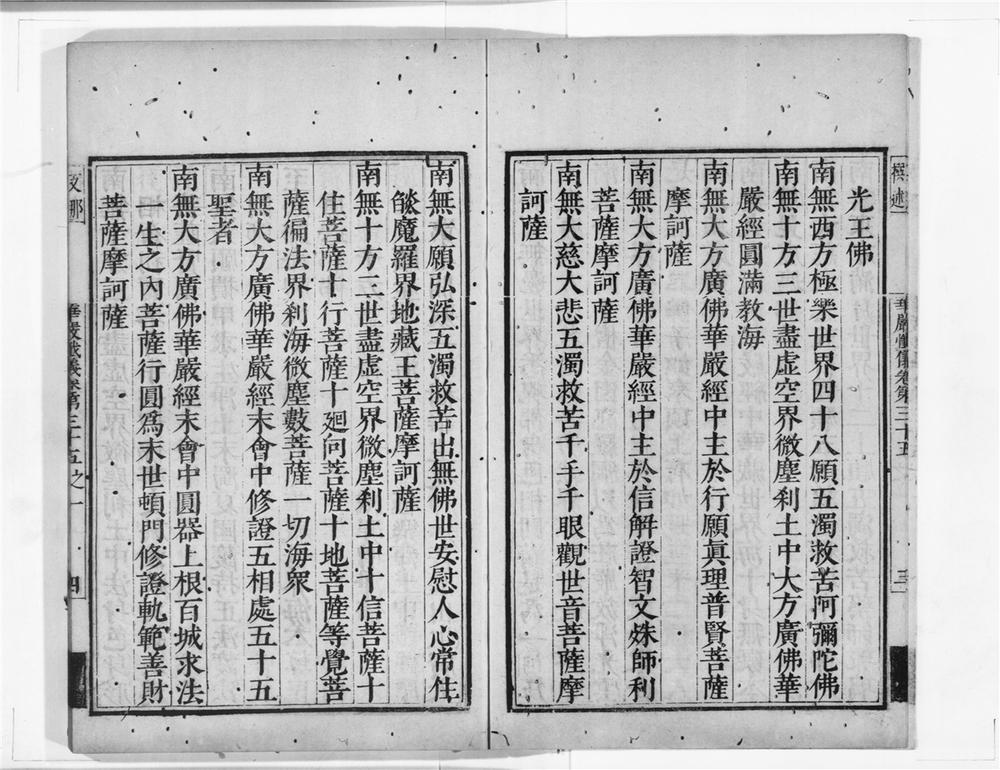 光王佛
南無西方極樂世界四十八願五濁救苦阿彌陀佛
南無十方三世盡虛空界微塵刹土中大方廣佛華
嚴經圓滿教海
南無大方廣佛華嚴經中主於行願眞理普賢菩薩
摩訶薩
南無大方廣佛華嚴經中主於信解證智文殊師利
菩薩摩訶薩
南無大慈大悲五濁救苦千手千眼觀世音菩薩摩
訶薩
南無大願弘深五濁救苦出無佛世安慰人心常住
燄魔羅界地藏王菩薩摩訶薩
南無十方三世盡虛空界微塵刹土中十信菩薩十
住菩薩十行菩薩十廻向菩薩十地菩薩等覺菩
薩徧法界刹海微塵數菩薩一切海衆
南無大方廣佛華嚴經末會中修證五相處五十五
聖者
南無大方廣佛華嚴經末會中圓器上根百城求法
一生之內菩薩行圓爲末世頓門修證軌範善財
菩薩摩訶薩
華嚴懺儀卷第三十五
三
華嚴懺儀卷第三十五之一
四